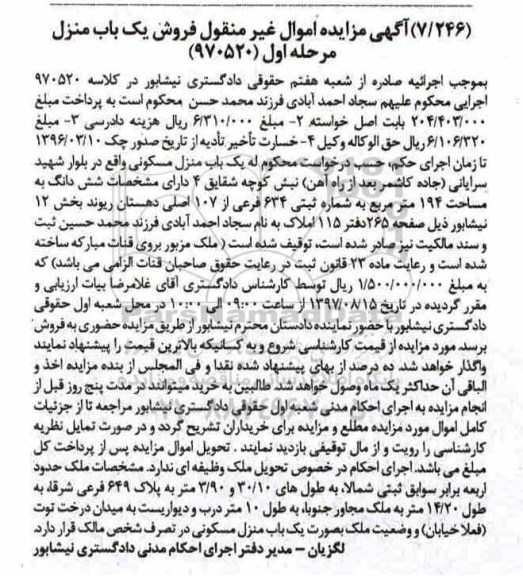 (۷/۲۴۶)آگهی مزایده اموال غیر منقول فروش یک باب منزل
مرحله اول (۹۷۰۵۲۰)
بموجب اجرائیه صادره از شعبه هفتم حقوقی دادگستری نیشابور در کلاسه ۹۷۰۵۲۰
اجرایی محکوم علیهم سجاد احمد آبادی فرزند محمد حسن محکوم است به پرداخت مبلغ
۲۰۴/۴۰۳/۰۰۰ بابت اصل خواسته ۲- مبلغ ۶/۳۱۰/۰۰۰ ریال هزینه دادرسی ۳- مبلغ
۶/۱۰۶/۳۲۰ ریال حق الوکاله وکیل ۴- خسارت تأخیر تأدیه از تاریخ صدور چک ۱۳۹۶/۰۳/۱۰
تا زمان اجرای حکم، حسب درخواست محکوم له یک باب منزل مسکونی واقع در بلوار شهید
سرایانی (جاده کاشمر بعد از راه آهن) نبش کوچه شقایق ۴ دارای مشخصات شش دانگ به
مساحت ۱۹۴ متر مربع به شماره ثبتی ۶۳۴ فرعی از ۱۰۷ اصلی دهستان ریوند بخش ۱۲
نیشابور ذیل صفحه ۲۶۵دفتر ۱۱۵ املاک به نام سجاد احمدی آبادی فرزند محمد حسین ثبت
و سند مالکیت نیز صادر شده است، توقیف شده است ( ملک مزبور بروی قنات مبارکه ساخته
شده است و رعایت ماده ۲۳ قانون ثبت در رعایت حقوق صاحبان قنات الزامی می باشد) که
به مبلغ ۱/۵۰۰/۰۰۰/۰۰۰ ریال توسط کارشناس دادگستری آقای غلامرضا بیات ارزیابی و
مقرر گردیده در تاریخ ۱۳۹۷/۰۸/۱۵ از ساعت ۰۹:۰۰ الی ۱۰:۰۰ در محل شعبه اول حقوقی
دادگستری نیشابور با حضور نماینده دادستان محترم نیشابور از طریق مزایده حضوری به فروش
برسد. مورد مزایده از قیمت کارشناسی شروع و به کسانیکه بالاترین قیمت را پیشنهاد نمایند
واگذار خواهد شد. ده درصد از بهای پیشنهاد شده نقدا و فی المجلس از بنده مزایده اخذ و
الباقی آن حداکثر یک ماه وصول خواهد شد. طالبین به خرید میتوانند در مدت پنج روز قبل از
انجام مزایده به اجرای احکام مدنی شعبه اول حقوقی دادگستری نیشابور مراجعه تا از جزئیات
کامل اموال مورد مزایده مطلع و مزایده برای خریداران تشریح گردد و در صورت تمایل نظریه
کارشناسی را رویت و از مال توقیفی بازدید نمایند . تحویل اموال مزایده پس از پرداخت کل
مبلغ می باشد. اجرای احکام در خصوص تحویل ملک وظیفه ای ندارد. مشخصات ملک حدود
اربعه برابر سوابق ثبتی شمالا، به طول های ۳۰/۱۰ و ۳/۹۰ متر به پلاک ۶۴۹ فرعی شرقا، به
طول ۱۴/۲۰ متر به ملک مجاور جنوبا، به طول ۱۰ متر درب و دیواریست به میدان درخت توت
(فعلا خیابان) و وضعیت ملک بصورت یک باب منزل مسکونی در تصرف شخص مالک قرار دارد.
لگزیان - مدیر دفتر اجرای احکام مدنی دادگستری نیشابور